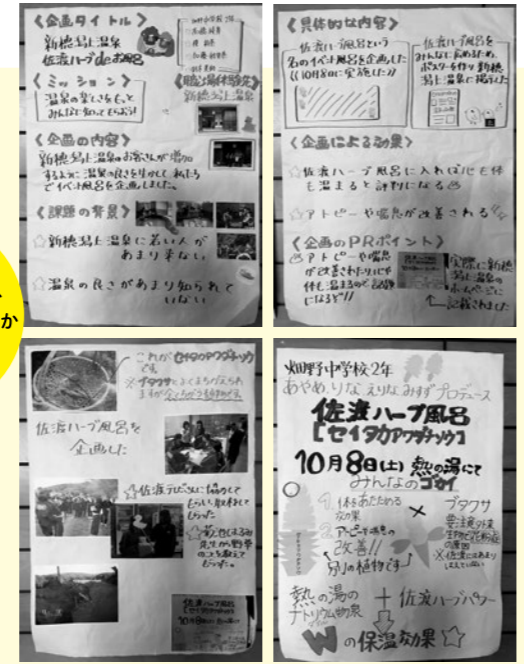 《企画タイトル》
新穂潟上温泉
佐渡ハーブdeお風呂
《ミッション》
温泉の楽しさをもっと
みんなに知ってもらおう!
《職場体験先》
新穂潟上温泉
《企画の内容》
新穂潟上温泉のお客さんが増加
するように温泉の良さを生かして私たち
でイベント風呂を企画しました。
《課題の背景》
☆新穂潟上温泉に若い人が
あまり来ない
☆温泉の良さがあまり知られて
いない
《具体的な内容》
佐渡ハーブ風呂という
名のイベント風呂を企画した
(10月8日に実施した)
佐渡ハーブ風呂を
みんなに広めるため、
ポスターを作り新穂
潟上温泉に掲示した
《企画による効果》
☆佐渡ハーブ風呂に入れば心も体
も温まると評判になる
☆アトピーや喘息が改善される
《企画のPRポイント》
アトピーや喘息
が改善されたり心や
体も温まるので記録
になるど!!
実際に新穂
潟上温泉の
ホームページに
記載されました
か
これがセイタカアワダチソウ
です。
※ブタクサとよくまちがえられ
ますが全くちがう植物です。
佐渡ハーブ風呂を
企画した
☆佐渡テレビさんに協力して
もらい取材して
もらった
畑野中学校2年
あやめ、りな、えりな、みすずプロデュース
佐渡ハーブ風呂
[セイタカアワダチソウ]
10月8日(土) 熱の湯にて
みんなのゴカイ
1. 体をあたためる
効果
2. アトピーや喘息の
改善!!
ブタクサ
要注意外来
生物で花粉症
の原因
※佐渡にはあまり
はえていない
別の植物です
熱の湯の
ナトリウム効果
+ 佐渡ハーブパワー
Wの保温効果☆